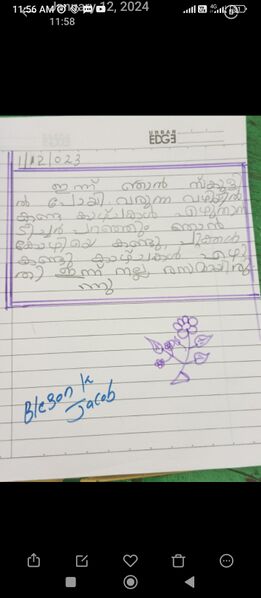 11:56 AM
January 12, 2024
11:58
URBAN
EDGE
1/12/023
ഇന്ന് ഞാൻ സ്കൂളി
ൽ പോയി വരുന്ന വഴിയിൽ
കണ്ട കാഴ്ചകൾ എഴുതാൻ
ടീച്ചർ പറഞ്ഞു ഞാൻ
കോഴിയെ കണ്ടു പൂക്കൾ
കണ്ടു കാഴ്ചകൾ എഴു
തി ഇന്ന് നല്ല രസമായിരു
ന്നു
Bleson k
Jacob